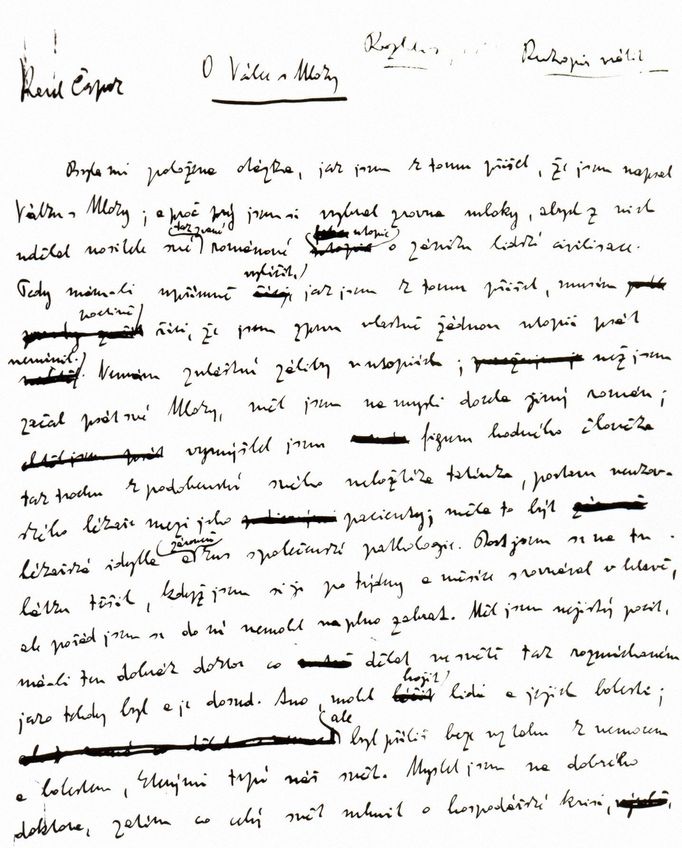 Karel Čapek
O Válce s Mloky
Rozhlas
Rukopis vrátit
Byla mi položena otázka, jak jsem k tomu přišel, že jsem napsal
Válku s Mloky; a proč prý jsem si vybral zrovna mloky, abych z nich
udělal nositele své tak zvané románové utopie o zániku lidské civilisace.
Tedy mám-li upřímně vylíčit, jak jsem k tomu přišel, musím
poctivě říci, že jsem zprvu vlastně žádnou utopii psát
nemínil. Nemám zvláštní záliby v utopiích; než jsem
začal psát své Mloky, měl jsem na mysli docela jiný román;
vymýšlel jsem figuru hodného člověka
tak trochu z podobenství svého nebožtíka tatínka, postavu venkov-
ského lékaře mezi jeho pacienty; měla to být
lékařská idylka a zároveň kus společenské pathologie. Dost jsem se na tu
látku těšil, když jsem si ji po týdny a měsíce srovnával v hlavě,
ale pořád jsem se do ní nemohl naplno zabrat. Měl jsem nejistý pocit,
má-li ten dobrák doktor co dělat ve světě tak rozmíchaném
jako tehdy byl a je dosud. Ano, mohl hojit lidi a jejich bolesti;
ale byl příliš beze vztahu k nemocem
a bolestem, kterými trpí náš svět. Myslel jsem na dobrého
doktora, zatím co celý svět mluvil o hospodářské krisi,